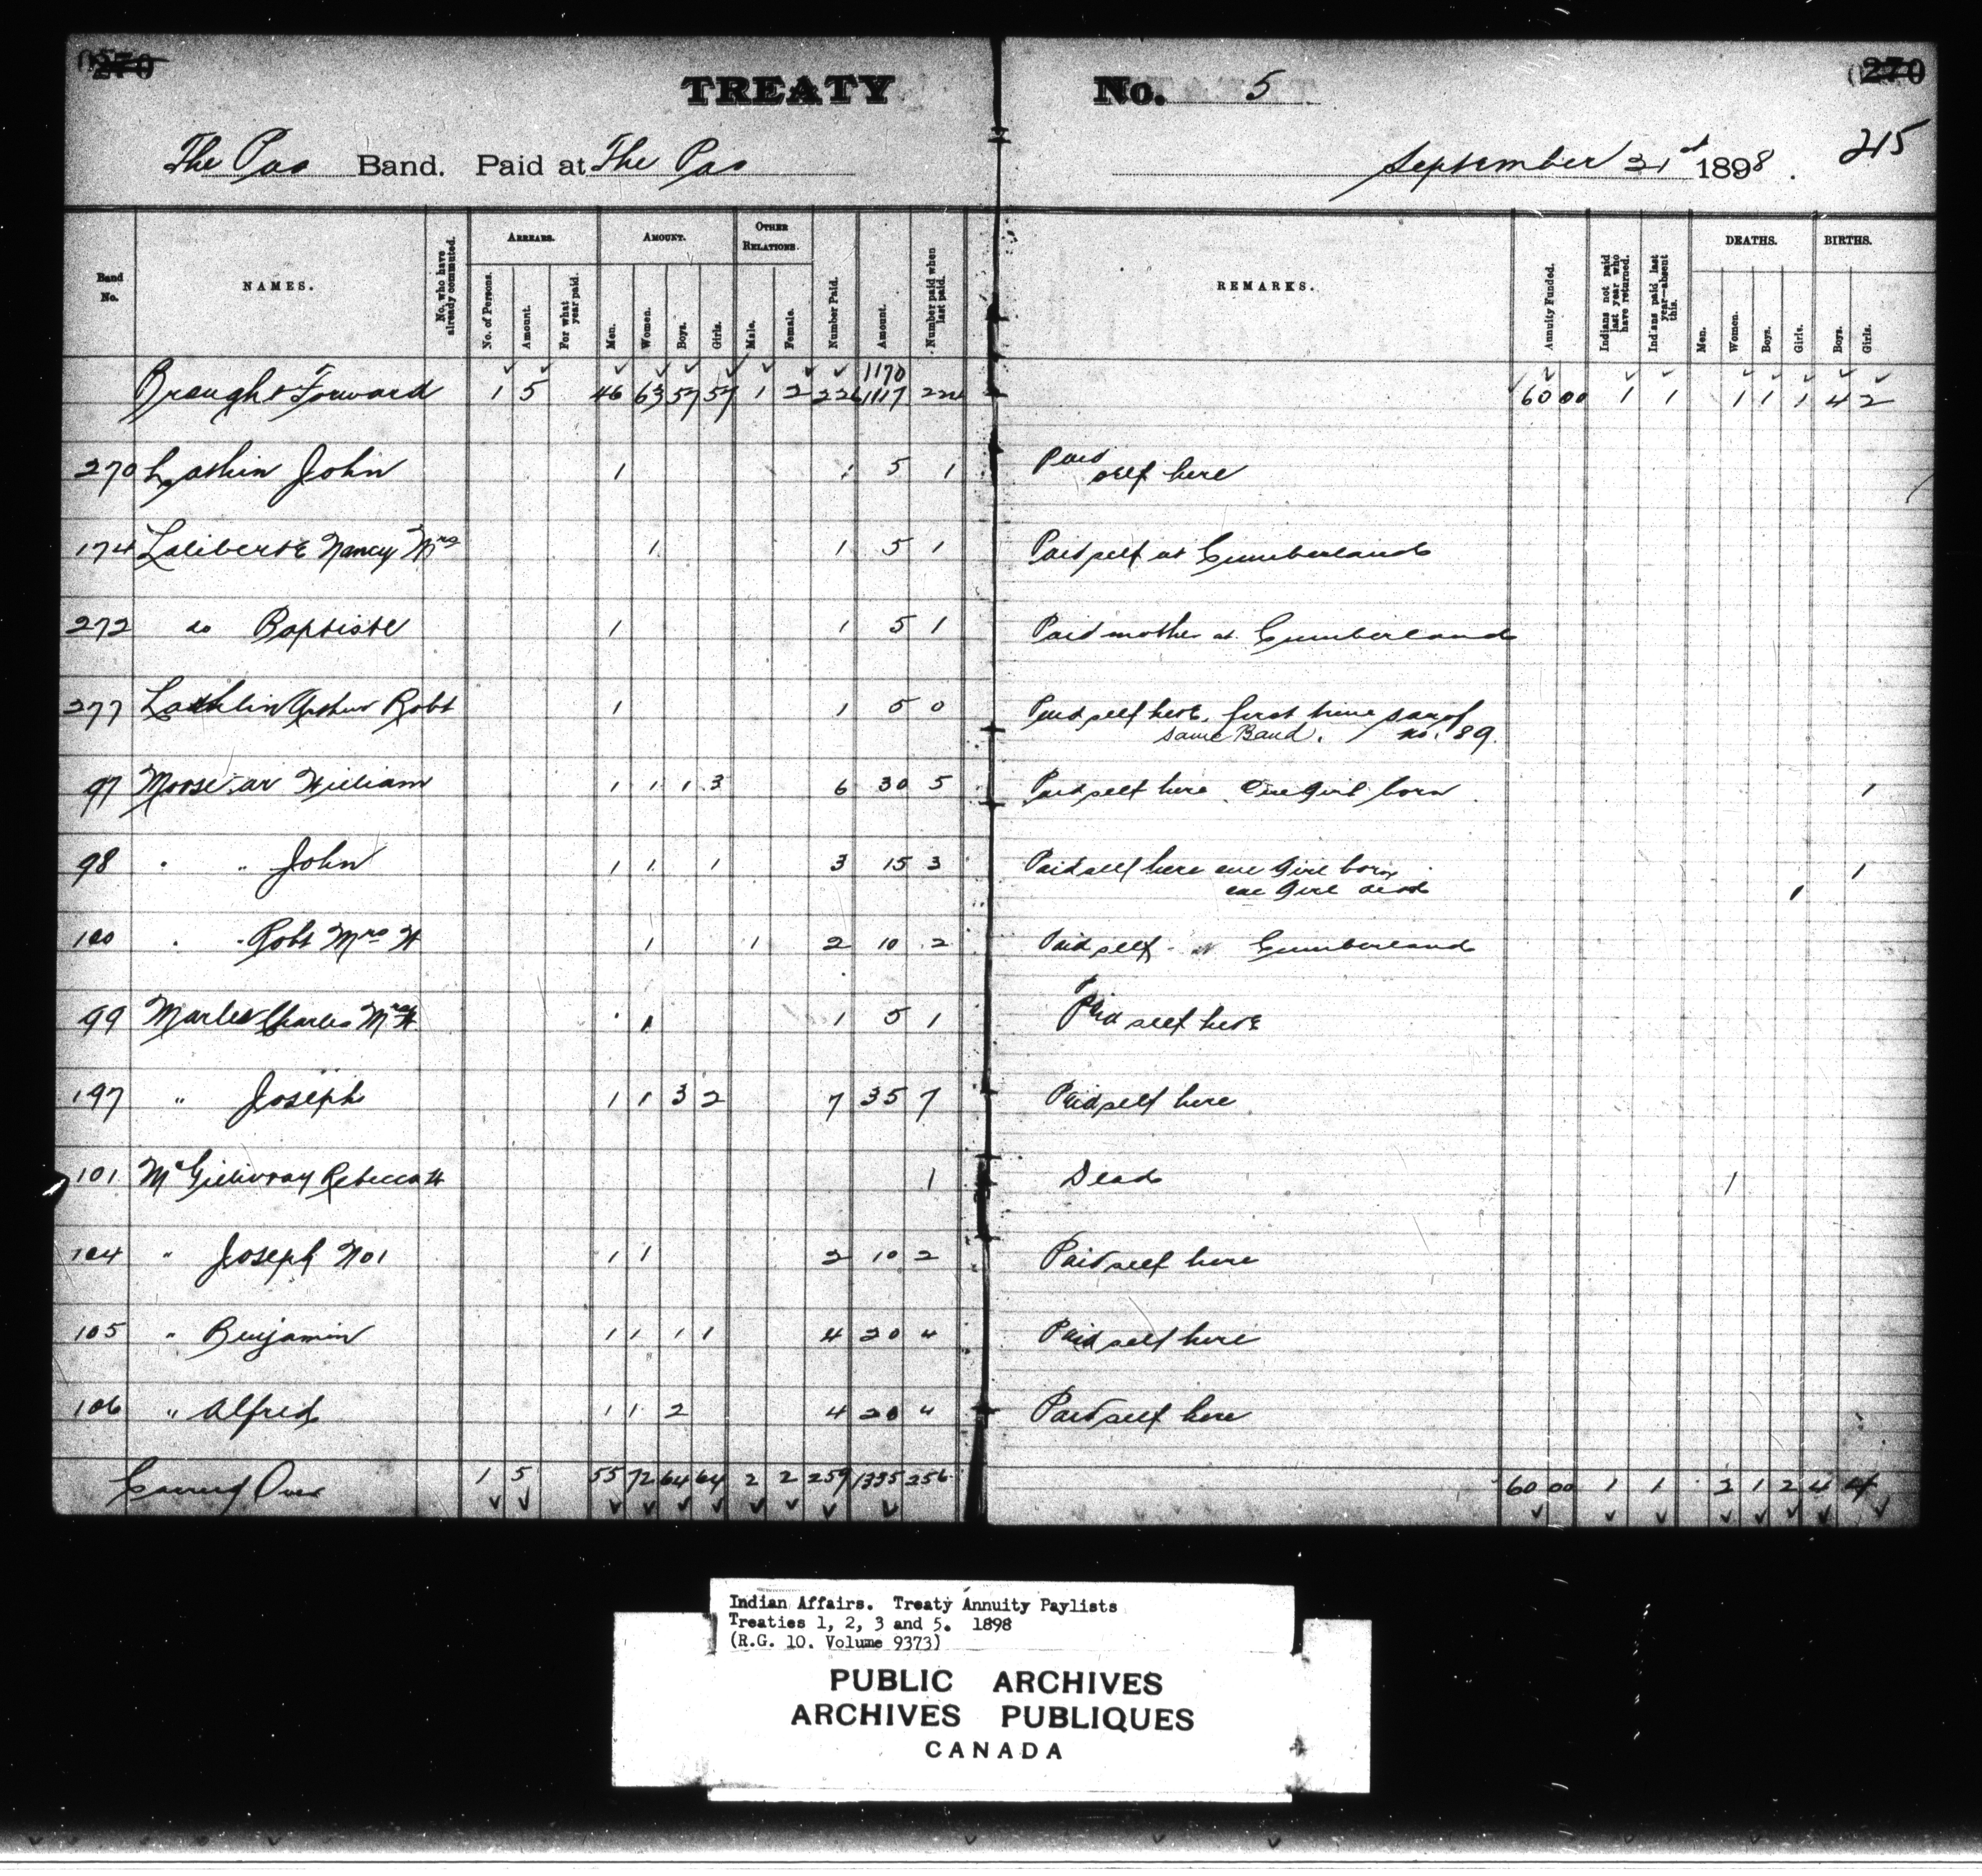 270
270
TREATY No. 5
215
The Pas Band. Paid at The Pas September 21st 1898.
Band No.
NAMES.
No. who have already commuted.
ARREARS.
No. of Persons.
Amount.
For what year paid.
AMOUNT.
Men.
Women.
Boys.
Girls.
OTHER RELATIONS.
Male.
Female.
Number Paid.
Amount.
Number paid when last paid.
REMARKS.
Annuity Funded.
Indians not paid last year who have returned.
Indians paid last year—absent this.
DEATHS.
Men.
Women.
Boys.
Girls.
BIRTHS.
Boys.
Girls.
1170
Brought Forward 1 5 46 63 57 57 1 2 226 1117 224 60 00 1 1 1 1 1 4 2
270 Lathlin John 1 1 5 1 Paid self here
174 Laliberte Nancy Mrs 1 1 5 1 Paid self at Cumberland
272 do Baptiste 1 1 5 1 Paid mother at Cumberland
277 Lathlin Arthur Robt 1 1 5 0 Paid self here, first time son of
same Band. no. 89.
97 Moose-ar William 1 1 1 3 6 30 5 Paid self here One girl born 1
98 " " John 1 1 1 3 15 3 Paid self here one girl born 1
one girl dead 1
100 " " Robt Mrs W 1 1 2 10 2 Paid self at Cumberland
99 Charles Mrs W 1 1 5 1 Paid self here
197 " Joseph 1 1 3 2 7 35 7 Paid self here
101 McGillivray Rebecca W 1 Dead 1
104 " Joseph No 1 1 1 2 10 2 Paid self here
105 " Benjamin 1 1 1 1 4 20 4 Paid self here
106 " Alfred 1 1 2 4 20 4 Paid self here
Carried Over 1 5 55 72 64 64 2 2 259 1335 256 60 00 1 1 2 1 2 4 4
Indian Affairs. Treaty Annuity Paylists
Treaties 1, 2, 3 and 5. 1898
(R.G. 10. Volume 9373)
PUBLIC ARCHIVES
ARCHIVES PUBLIQUES
CANADA